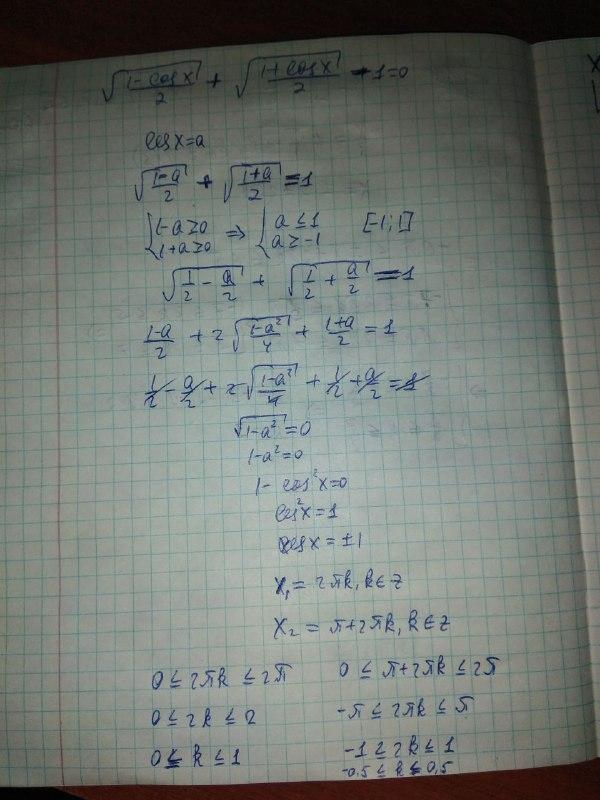 √((1-cosx)/2) + √((1+cosx)/2) - 1=0
cosx=a
√((1-a)/2) + √((1+a)/2) = 1
{1-a≥0 ⇒ {a≤1 [-1;1]
{1+a≥0 {a≥-1
√(1/2 - a/2) + √(1/2 + a/2) = 1
(1-a)/2 + 2√((1-a²)/4) + (1+a)/2 = 1
1/2 - a/2 + 2√((1-a²)/4) + 1/2 + a/2 = 1
√(1-a²) = 0
1-a²=0
1- cos²x=0
cos²x=1
cosx=±1
x₁= 2πk, k∈z
x₂ = π+2πk, k∈z
0≤2πk≤2π 0≤π+2πk≤2π
0≤2k≤2 -π≤2πk≤π
0≤k≤1 -1≤2k≤1
-0,5≤k≤0,5